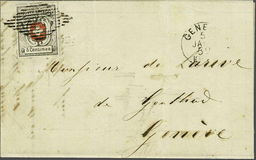 5 Centimes
GENE
5
JA
5
Monsieur de Larive
de Genthod
Genève